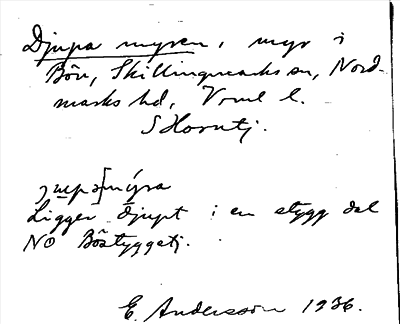 Djupa myren, myr i
Bön, Skillingmarks sn, Nord-
marks hd, Vrml l.
S Horntj.
Ligger djupt i en stygg dal
NO Böstyggetj.
E. Andersson 1936.